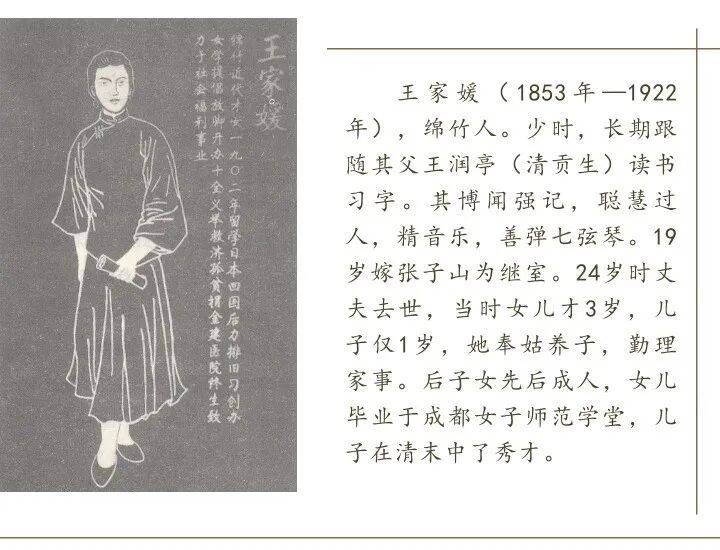 王家媛
绵竹近代才女一九〇二年留学日本回国后力排旧习创办
女学提倡放脚开办十全义举救济孤贫捐金建医院终生致
力于社会福利事业
王家媛（1853年—1922
年），绵竹人。少时，长期跟
随其父王润亭（清贡生）读书
习字。其博闻强记，聪慧过
人，精音乐，善弹七弦琴。19
岁嫁张子山为继室。24岁时丈
夫去世，当时女儿才3岁，儿
子仅1岁，她奉姑养子，勤理
家事。后子女先后成人，女儿
毕业于成都女子师范学堂，儿
子在清末中了秀才。